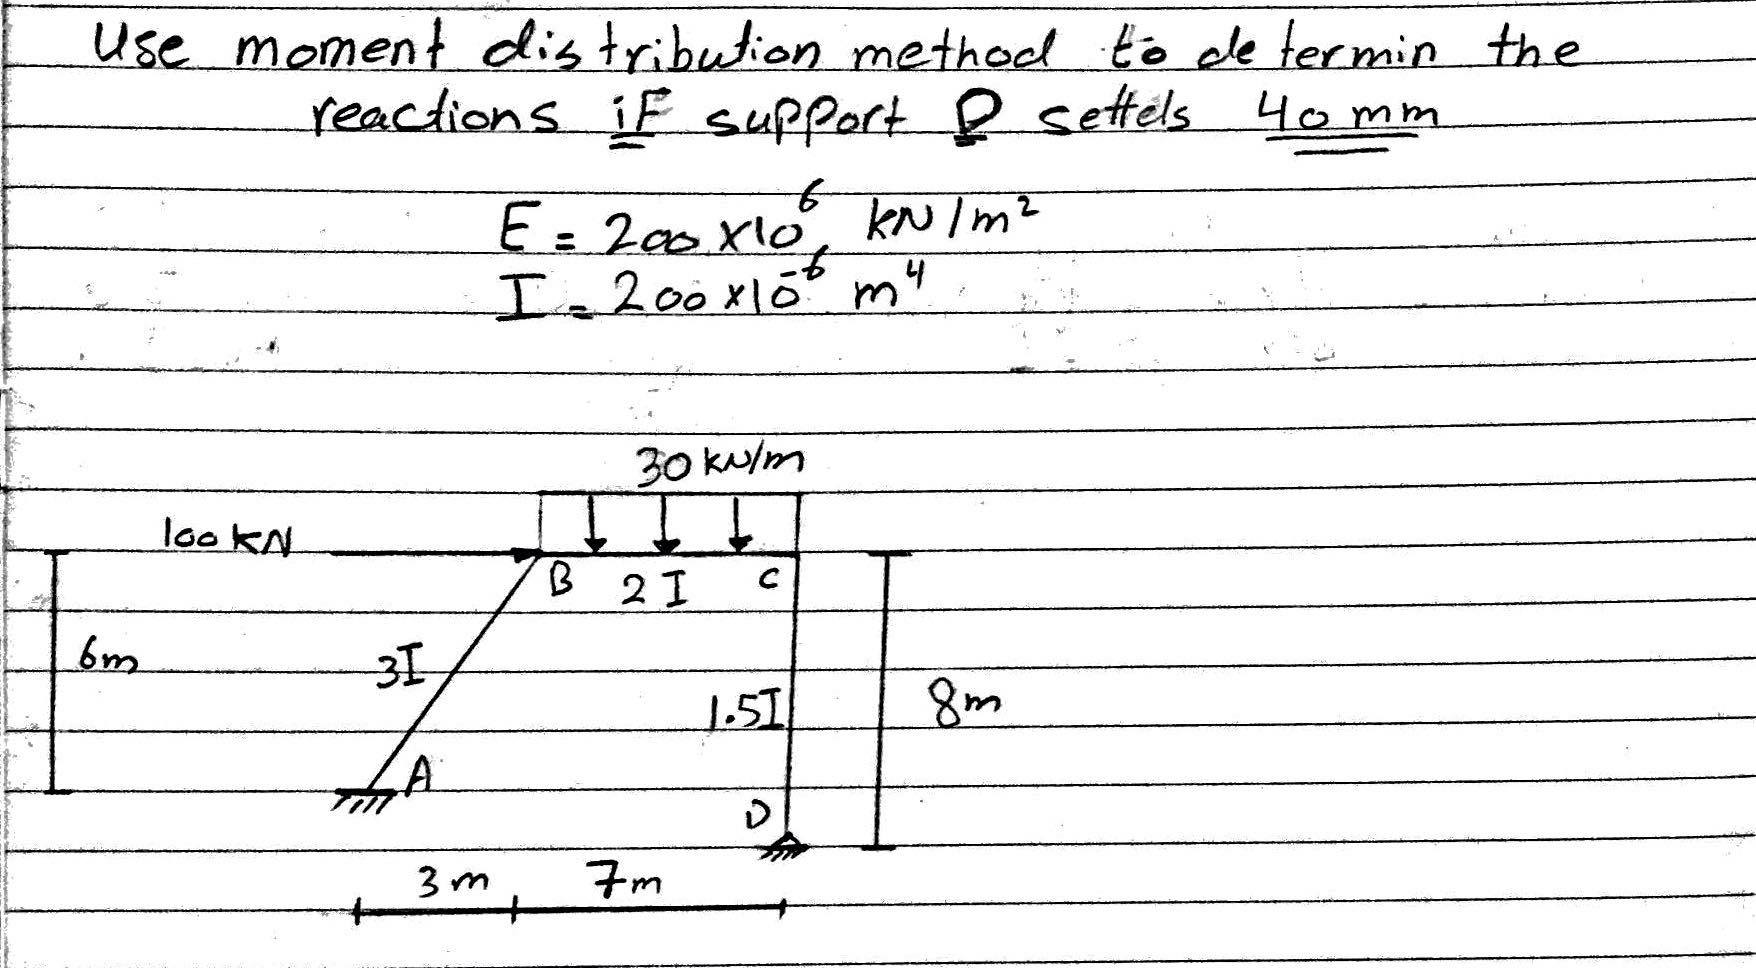 Use moment distribution method to determin the
reactions if support D settels 40 mm
E = 200 x10⁶ kN/m²
I = 200 x10⁻⁶ m⁴
30 kN/m
100 KN
B 2 I C
6m
3I
1.5I
8m
A
D
3 m 7m